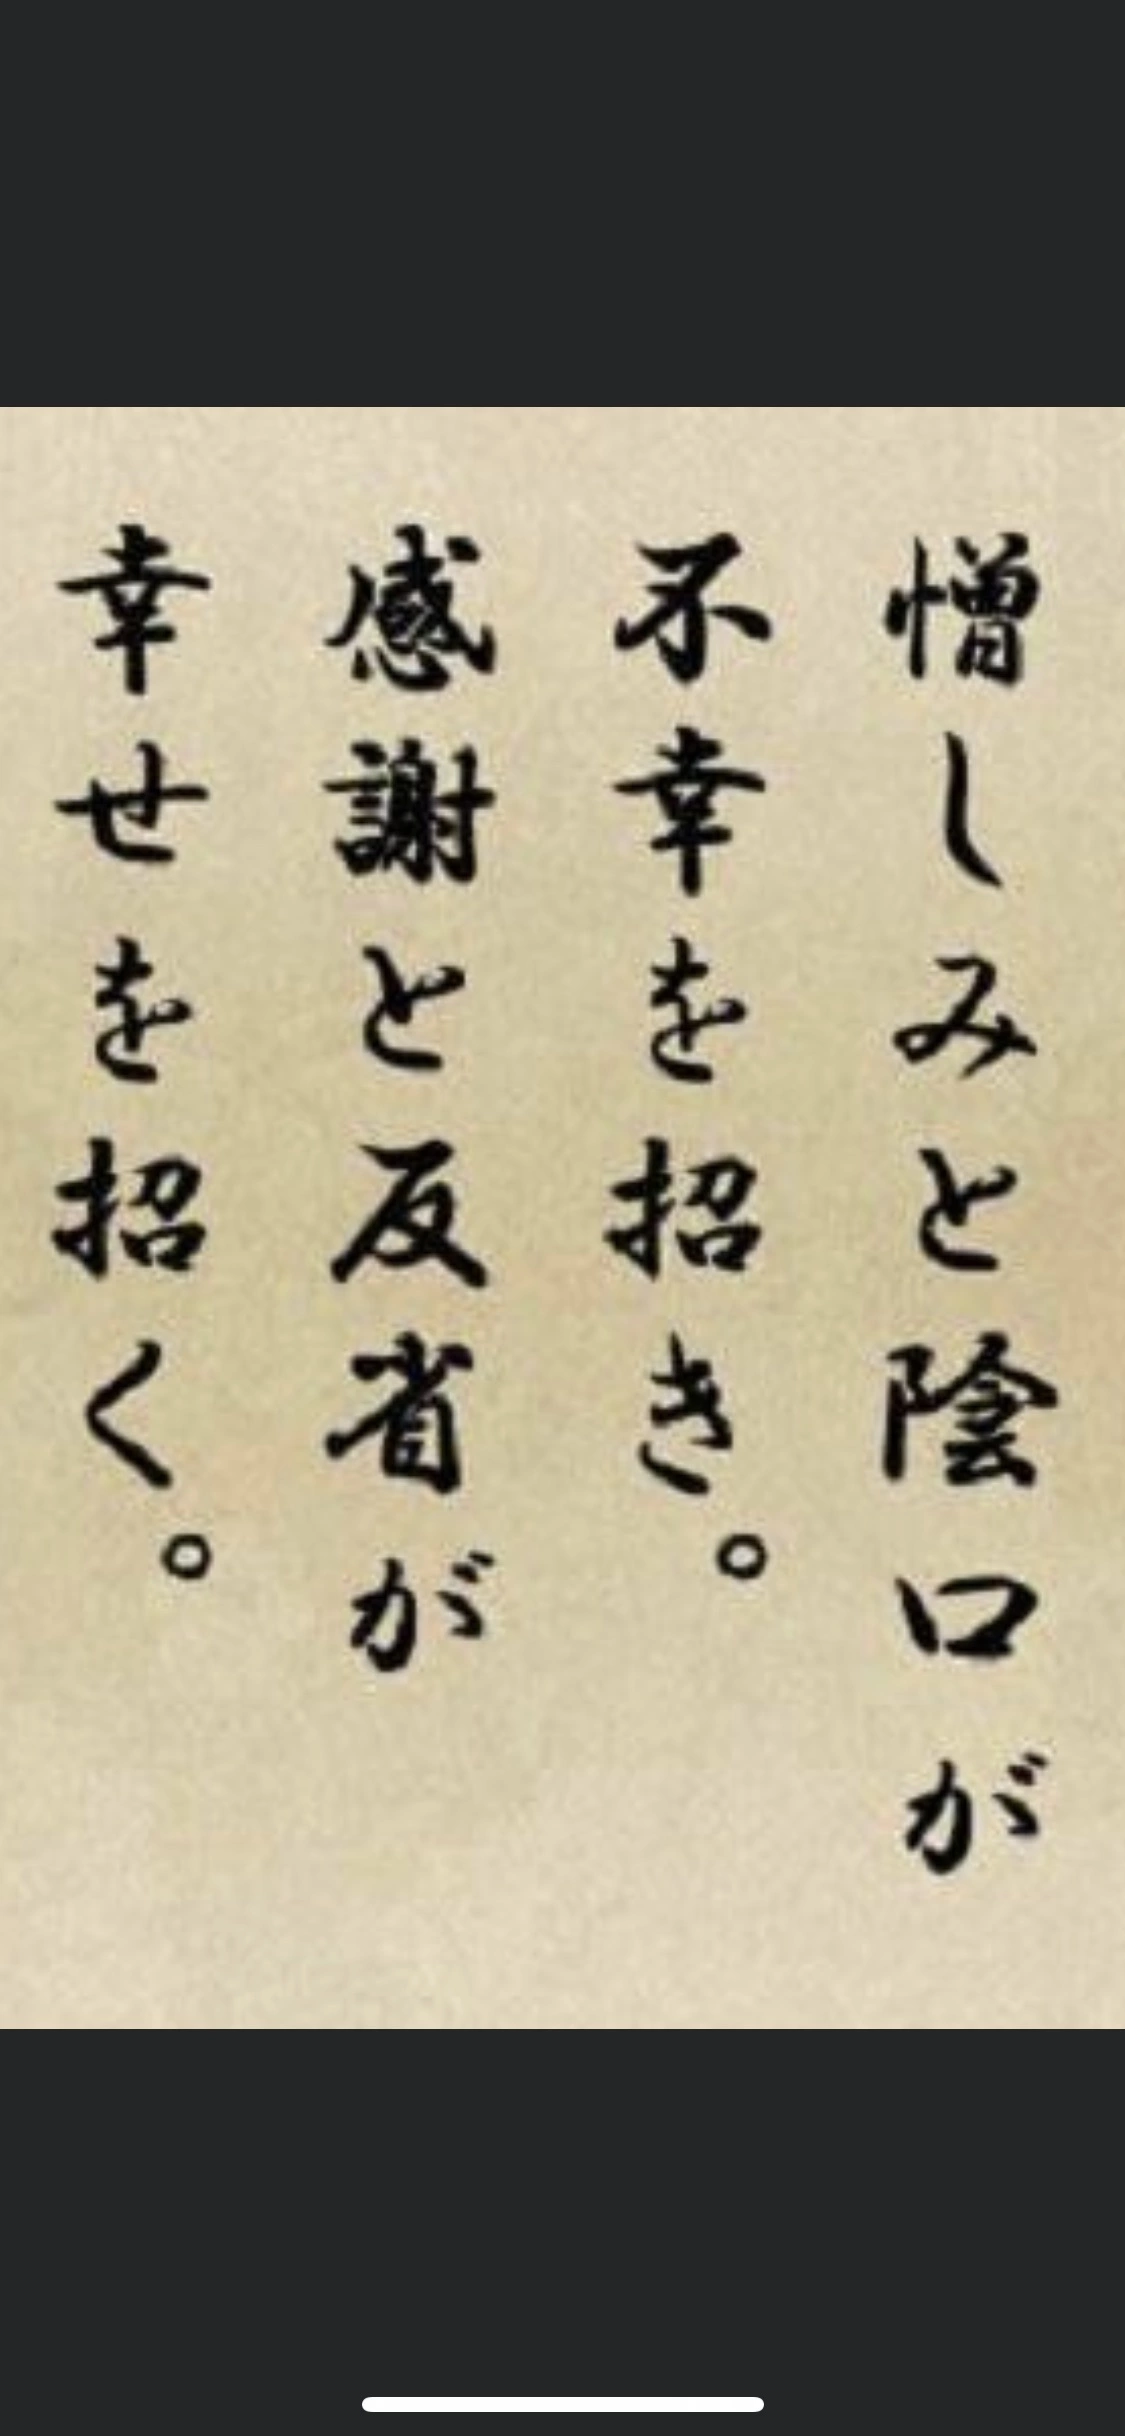 憎しみと陰口が
不幸を招き。
感謝と反省が
幸せを招く。